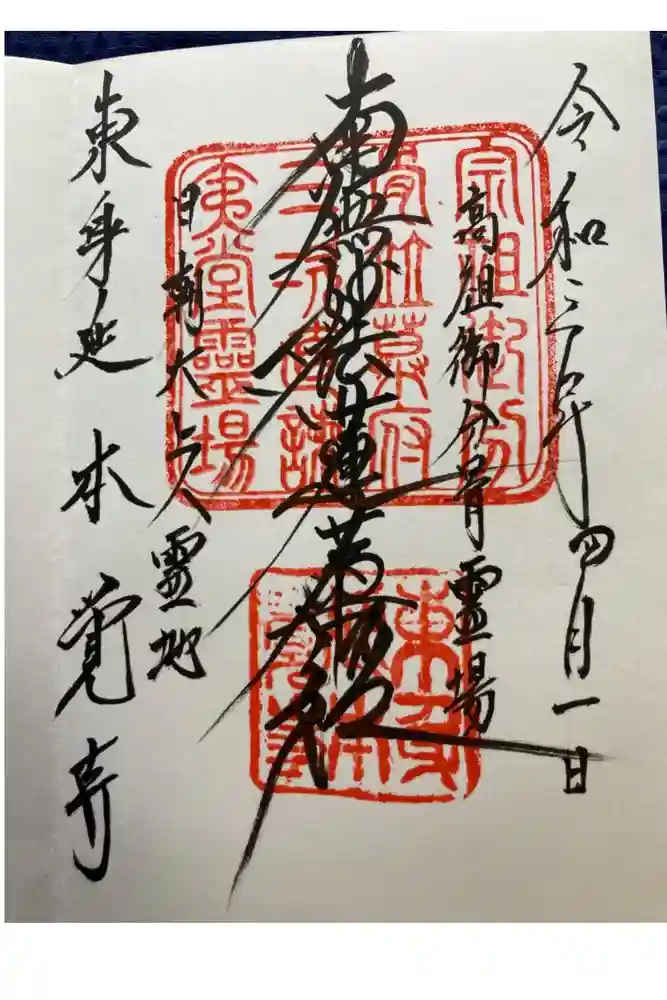 令和三年四月一日
高祖御分骨霊場
南無妙法蓮華経
日朝大上人霊地
東身延 本覚寺
宗祖御分
夷堂靈場
東身
延本
覺寺